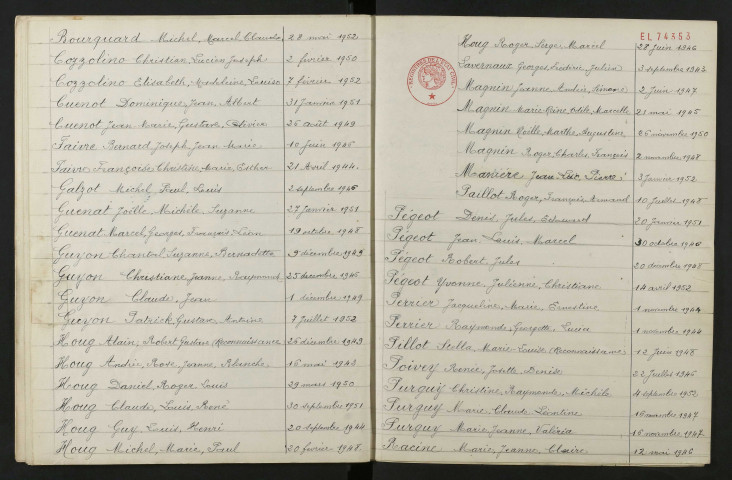 Bourquard Michel, Marcel Claude 28 mai 1952
Cozzolino Christian, Lucien Joseph 2 février 1950
Cozzolino Elisabeth, Madeleine, Louise 7 février 1952
Cuenot Dominique, Jean, Albert 31 Janvier 1951
Cuenot Jean Marie, Gustave, 25 août 1949
Faivre Bernard, Joseph, Jean Marie 10 Juin 1946
Faivre Françoise, Christine, Marie, Esther 21 Avril 1944
Galzot Michel, Paul, Louis 2 septembre 1946
Guenat Joëlle, Michèle, Suzanne 27 Janvier 1951
Guenat Marcel, Georges, François, Léon 19 octobre 1948
Guyon Chantal, Suzanne, Bernadette 9 décembre 1949
Guyon Christiane, Jeanne, Raymonde 25 décembre 1946
Guyon Claude, Jean 1 décembre 1949
Guyon Patrick, Gustave, Antoine 7 Juillet 1952
Houg Alain, Robert Gustave (Reconnaissance) 26 décembre 1949
Houg Andrée, Rose, Jeanne, Blanche 16 mai 1943
Houg Daniel, Roger, Louis 29 mars 1950
Houg Claude, Louis, René 30 septembre 1951
Houg Guy, Louis, Henri 20 septembre 1944
Houg Michel, Marie, Paul 20 février 1948
EL 74553
Houg Roger, Serge, Marcel 28 Juin 1946
Savernaux Georges, Frédéric, Julien 3 septembre 1943
Magnin Jeanne, 2 Juin 1947
Magnin Marie Reine, Odile, Marcelle 21 mai 1945
Magnin Marthe, Augustine 26 novembre 1950
Magnin Roger, Charles, François 2 novembre 1948
Manière Jean-Luc, Pierre 3 Janvier 1952
Paillot Roger, François, Armand 10 Juillet 1948
Pégeot Denis, Jules, Edouard 20 Janvier 1951
Pégeot Jean, Louis, Marcel 30 octobre 1946
Pégeot Robert, Jules 20 décembre 1948
Pégeot Yvonne, Julienne, Christiane 14 avril 1952
Perrier Jacqueline, Marie, Ernestine 1 novembre 1944
Perrier Raymonde, Georgette, Lucia 1 novembre 1944
Pillot Stella, Marie-Louise (Reconnaissance) 12 Juin 1948
Poivey Renée, Josette, Denise 22 Juillet 1946
Purguy Christine, Raymonde, Michèle 4 septembre 1952
Purguy Marie-Claude, Léontine 16 novembre 1947
Purguy Marie Jeanne, Valéria 16 novembre 1947
Racine Marie, Jeanne, Claire 12 mai 1946